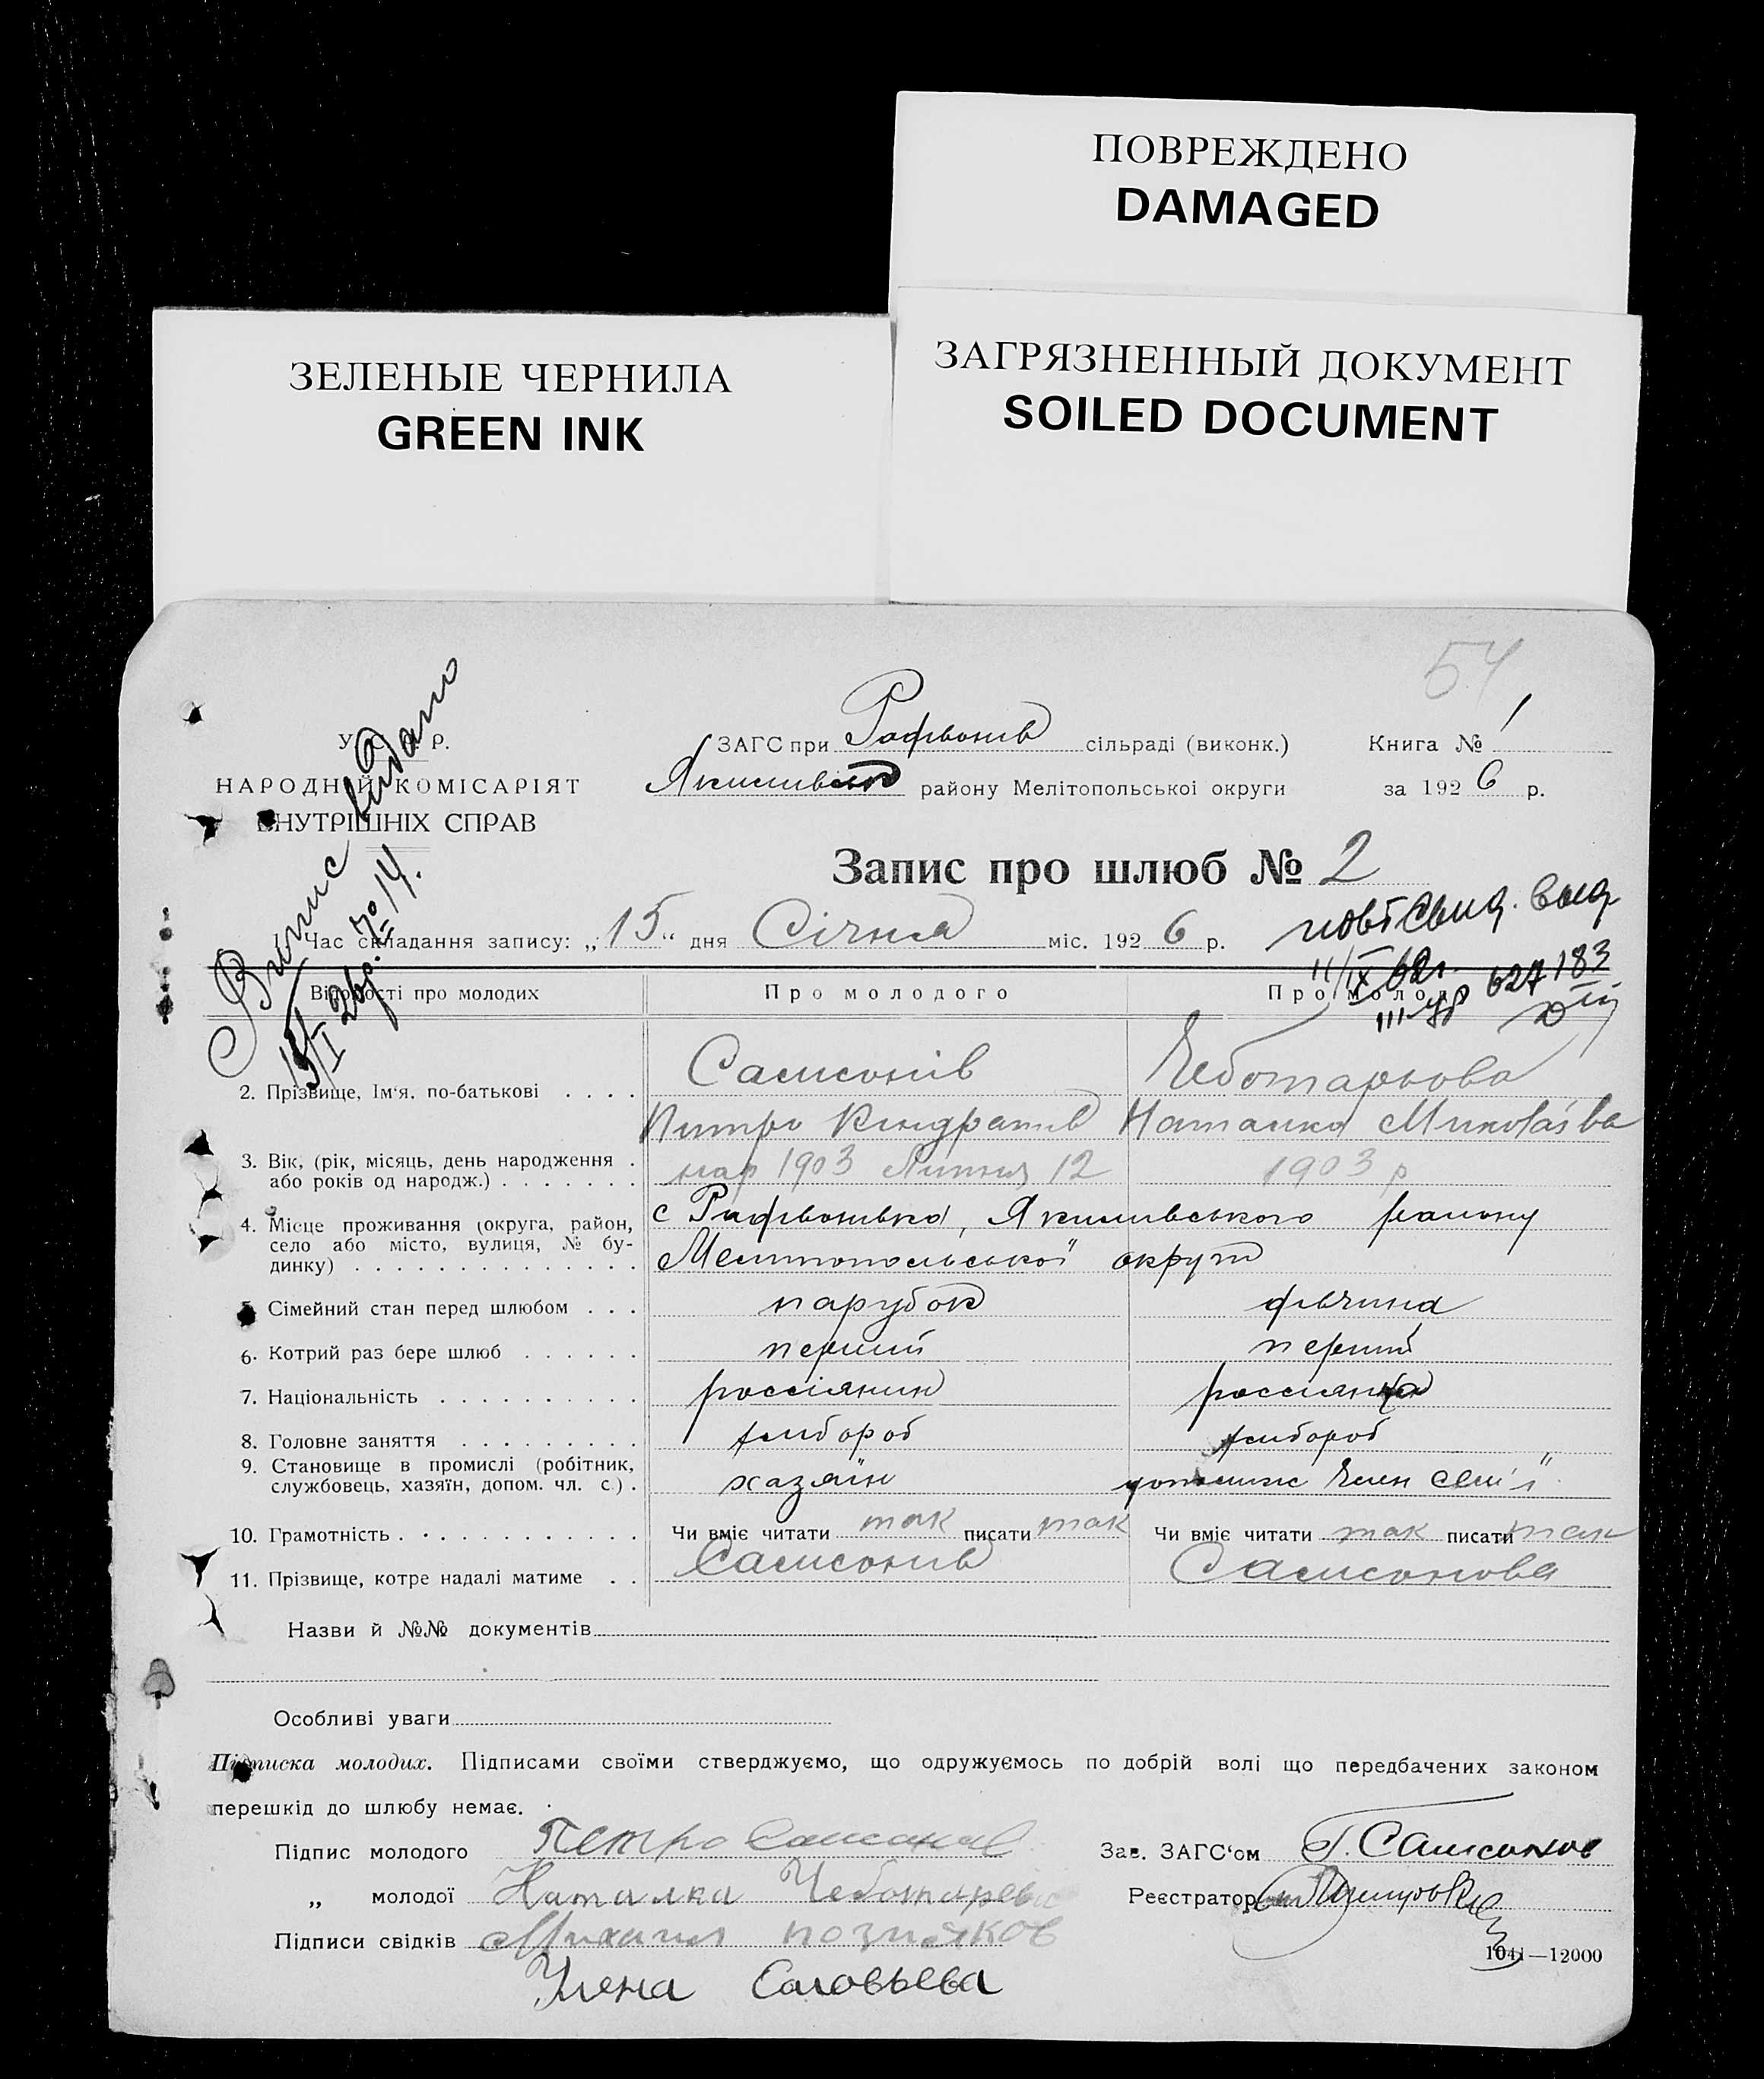 ПОВРЕЖДЕНО
DAMAGED
ЗЕЛЕНЫЕ ЧЕРНИЛА
GREEN INK
ЗАГРЯЗНЕННЫЙ ДОКУМЕНТ
SOILED DOCUMENT
54
Р.
НАРОДНИЙ КОМІСАРІЯТ
ВНУТРІШНІХ СПРАВ
Випис видано
15/I 26р. № 14.
ЗАГС при сільраді (виконк.)
району Мелітопольської округи
Книга № 1
за 1926 р.
Запис про шлюб № 2
Час складання запису: „15“ дня Січня міс. 1926 р.
11/IX 62г.
627183
Відомості про молодих
Про молодого
Про молод
2. Прізвище, Ім'я, по-батькові
Самсонів
Чеботарьова
Питро Кіндратів
Наталка Миколаївa
3. Вік, (рік, місяць, день народження
або років од народж.)
нар 1903 Липня 12
1903 р
4. Місце проживання (округа, район,
село або місто, вулиця, № бу-
динку)
с Якимивського району
Мелитопольської округи
5. Сімейний стан перед шлюбом
парубок
дівчина
6. Котрий раз бере шлюб
перший
перший
7. Національність
россіянин
россиянка
8. Головне заняття
хлибороб
хлибороб
9. Становище в промислі (робітник,
службовець, хазяїн, допом. чл. с.)
хазяїн
член семїї
10. Грамотність
Чи вміє читати так писати так
Чи вміє читати так писати так
11. Прізвище, котре надалі матиме
Самсонив
Самсонова
Назви й №№ документів
Особливі уваги
Підписка молодих. Підписами своїми стверджуємо, що одружуємось по добрій волі що передбачених законом
перешкід до шлюбу немає.
Підпис молодого Петро Самсонов
„ молодої Наталка Чеботарев
Підписи свідків Михаил позняков
Улена Соловьева
Зав. ЗАГС'ом Г. Самсонов
Реєстратор
1041—12000